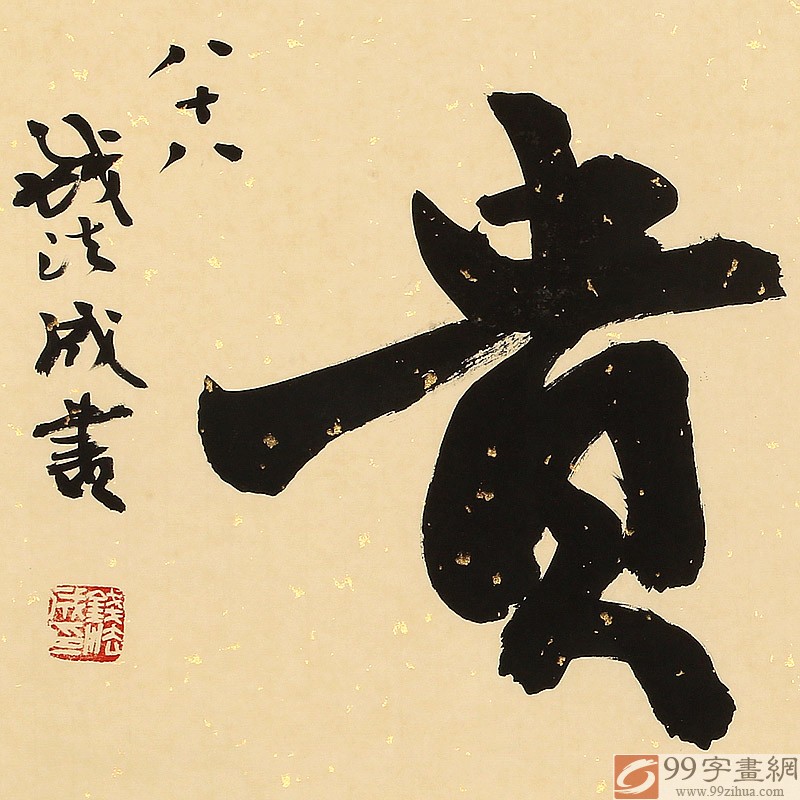 貴
八十八
錢法成書
錢法成印
99字畫網
www.99zihua.com